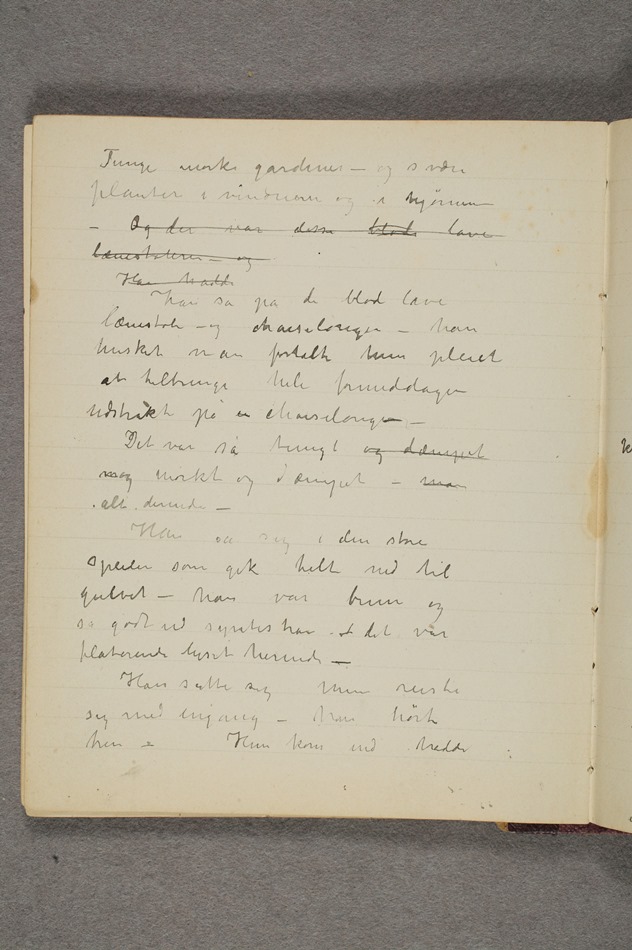 Tunge mørke gardiner – og svære
planter i vinduerne og i hjørnerne
– Og der var disse bløde lave
lænestolene – og
Han hadde
Han så på de blød lave
lænestole – og chaiselongen – han
husket man fortalte hun pleiet
at tilbringe hele formiddagen
udstrakt på en chaiselonge –
Det var så tungt og dæmpet
og mørkt og dæmpet – man
alt dernede –
Han så sig i den store
speilen som gik helt ned til
gulvet – han var brun og
så godt ud syntes han – det var
flaterende lyset herinde –
Han satte sig men reiste
sig med engang – han hørte
hen – Hun kom ind hadde